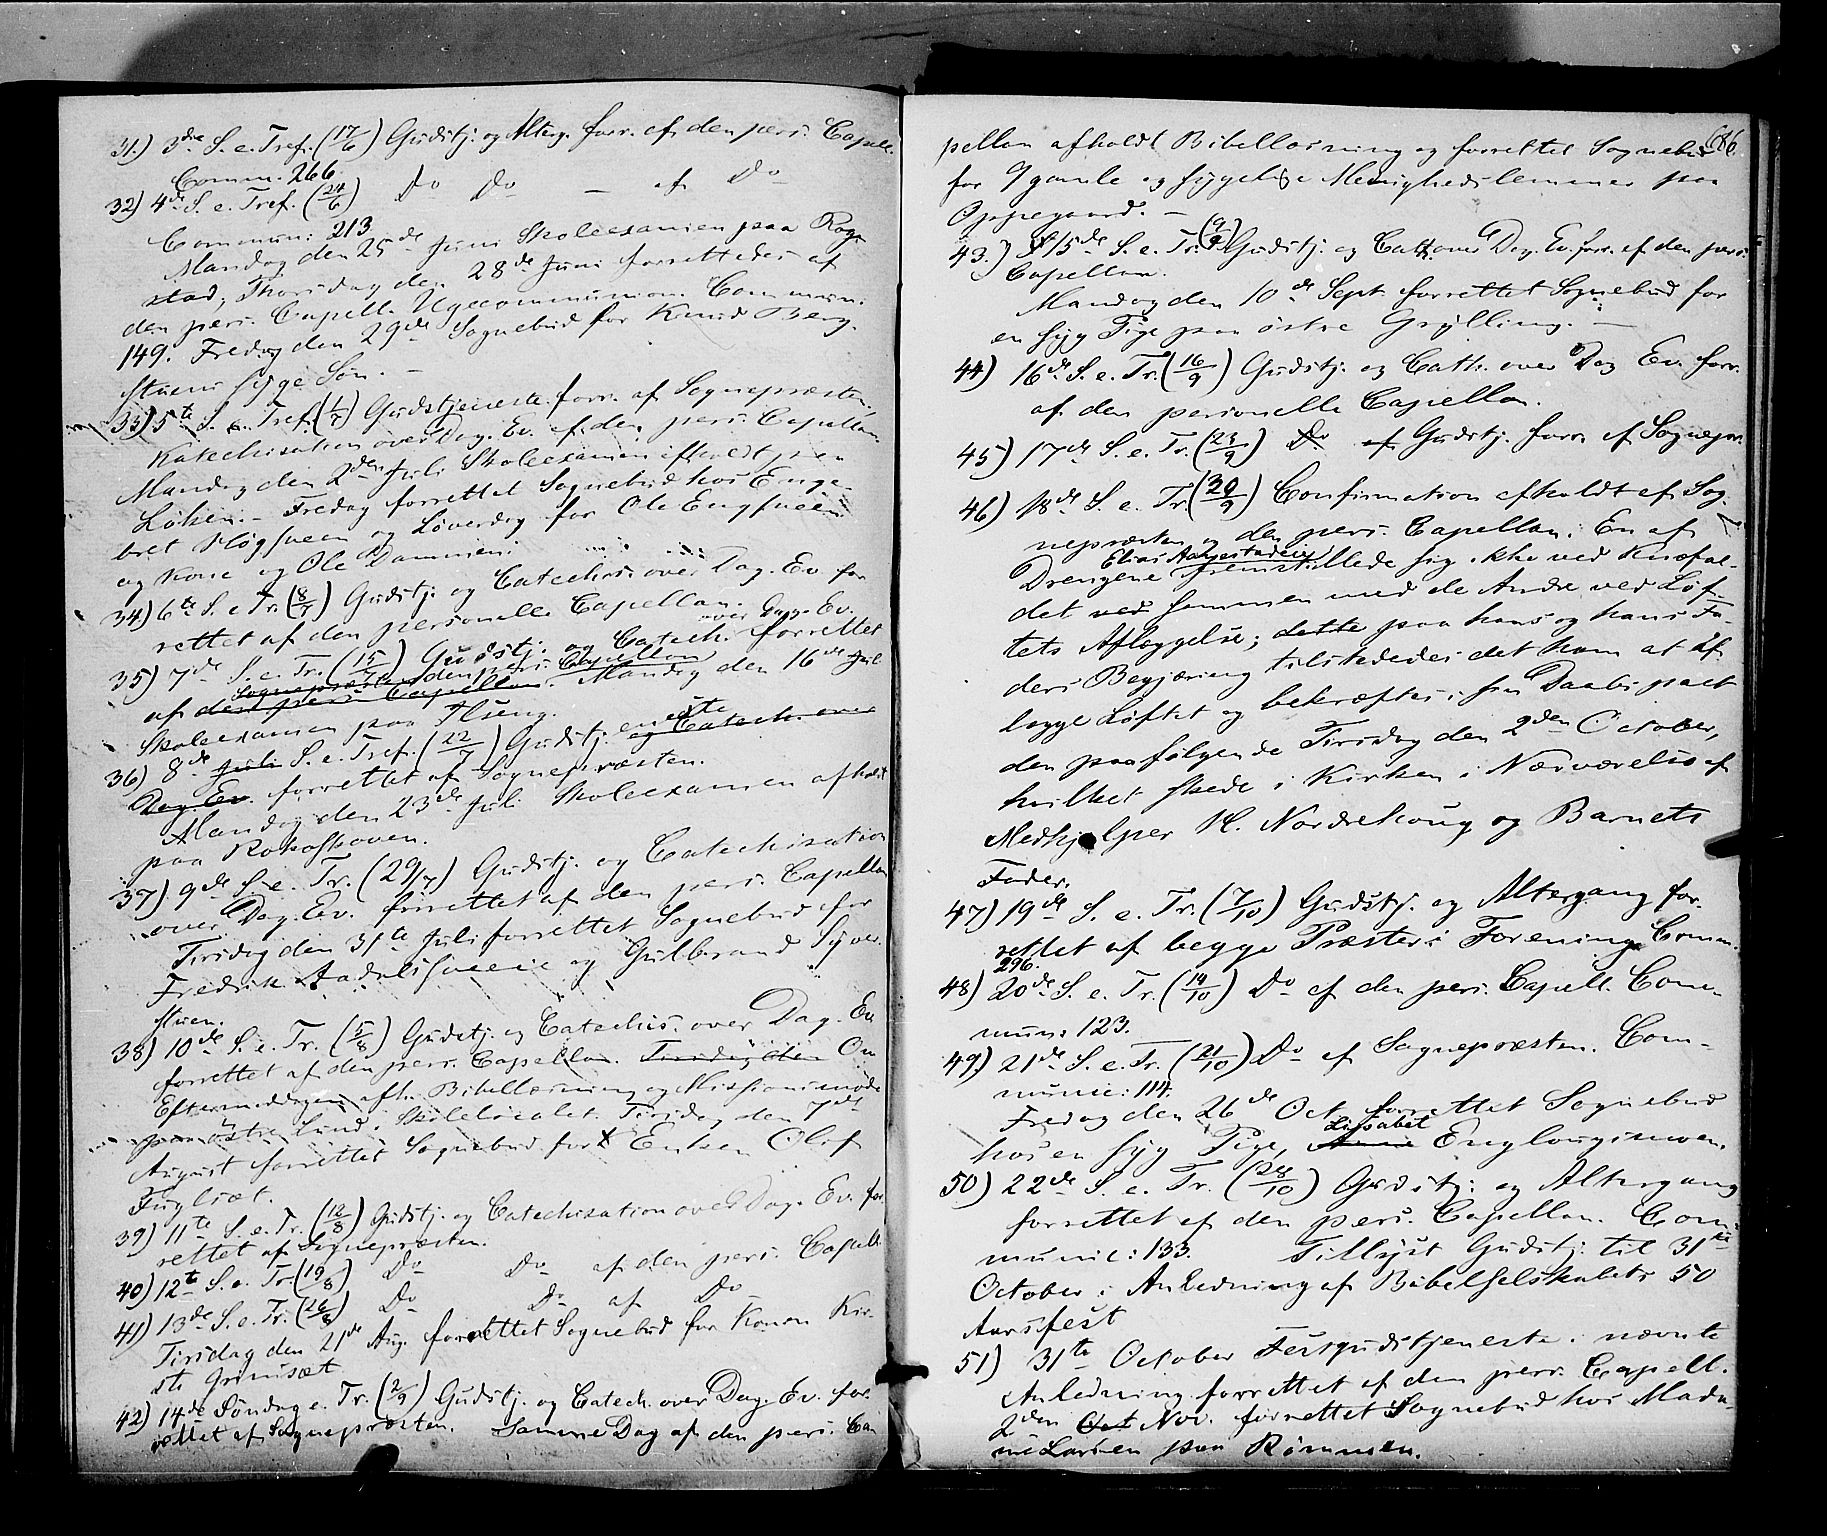 31.) 3die S. e. Tref. (17/6) Gudstj. og Alterg. forr. af den pers. Capell.
Comm. 266.
32) 4de S. e. Tref. (24/6) Do Do – af Do
Commun: 213
Mandag den 25de Juni Skoleexamen paa Rog-
stad, Thorsdag den 28de Juni forrettedes af
den pers. Capell. Ugecommunion. Commun.
149. Fredag den 29de Sognebud for Knud Berg-
stuens syge Søn. –
33) 5te S. e. Tref. (1/7) Gudstjeneste forr. af Sognepræsten,
Katechisation over Dag. Ev. af den pers. Capellan.
Mandag den 2den Juli Skoleexamen afholdt paa
Løken. – Fredag forrettet Sognebud hos Enge-
bret Høgsveen og Løverdag for Ole Engsveen
og Kone og Ole Dammen.
34) 6te S. e. Tr. (8/7) Gudstj. og Catechis. over Dag. Ev. for-
rettet af den personelle Capellan.
35) 7de S. e. Tr. (15/7) Gudstj. og Catech. over Dag. Ev. forrettet
af den pers. Capellan. Sognepræsten den pers. Capellan Mandag den 16de Juli
Skoleexamen paa
36) 8de Juli S. e. Tref. (22/7) Gudstj. eneste og Catech. over
Dag. Ev. forrettet af Sognepræsten.
Mandag den 23de Juli Skoleexamen afholdt
paa Kokoshoven.
37) 9de S. e. Tr. (29/7) Gudstj. og Catechisation
over Dag. Ev. forrettet af den pers. Capellan
Tirsdag den 31te Juli forrettet Sognebud for
Fredrik og Gulbrand Syver-
stuen.
38) 10de S. e. Tr. (5/8) Gudstj. og Catechis. over Dag. Ev.
forrettet af den pers. Capellan. Torsdag den Om
Eftermiddagen afh. Bibellæsning og Missionsmøde
paa østre Lund i Skolelocalet. Tirsdag den 7de
August forrettet Sognebud for Enken Olof
Fuglset.
39) 11te S. e. Tr. (12/8) Gudstj. og Catechisation over Dag. Ev. for-
rettet af Sognepræsten.
40) 12te S. e. Tr. (19/8) Do Do af den pers. Capell.
41) 13de S. e. Tr. (26/8) Do Do af Do
Tirsdag den 21de Aug. forrettet Sognebud for Konen Kir-
sti Grimsæt
42) 14de Søndag e. Tr. (2/9) Gudstj. og Catech. over Dag. Ev. for-
rettet af Sognepræsten. Samme Dag af den pers. Ca-
686.
pellan afholdt Bibellæsning og forrettet Sognebud
for 9 gamle og sygelige Menighedslemmer paa
Oppegaard. –
43.) 15de S. e. Tr. (9/9) Gudstj. og Cath. over Dag. Ev. forr. af den pers.
Capellan.
Mandag den 10de Sept. forrettet Sognebud for
en syg Pige paa østre Grylling. –
44) 16de S. e. Tr. (16/9) Gudstj. og Cath. over Dag. Ev. forr.
af den personelle Capellan.
45) 17de S. e. Tr. (23/9) Do af Gudstj. forr. af Sognepr.
46) 18de S. e. Tr. (30/9) Confirmation afholdt af Sog-
nepræsten og den pers. Capellan. En af
Drengene Elias fremstillede sig ikke ved Knæfal-
det ved sammen med de Andre ved Løf-
tets Aflæggelse; dette paa hans og hans Fa-
ders Begjæring tilstededes det ham at af-
lægge Løftet og bekræftes i sin Daabs pact
den paafølgende Tirsdag den 2den October,
hvilket skede i Kirken i Nærværelse af
Medhjelper H. Nordrehoug og Barnets
Fader.
47) 19de S. e. Tr. (7/10) Gudstj. og Altergang for-
rettet af begge Præster i Forening. Comm.
296.
48) 20de S. e. Tr. (14/10) Do af den pers. Capell. Com-
mun: 123.
49) 21de S. e. Tr. (21/10) Do af Sognepræsten. Com-
munic: 114.
Fredag den 26de Oct. forrettet Sognebud
hos en syg Pige, Anne Lissabet Englaugsmoen.
50) 22de S. e. Tr. (28/10) Gudstj. og Altergang
forrettet af den pers. Capellan. Com-
munic: 133. Tillyst Gudstj. til 31te
October i Anledning af Bibelselskabets 50
Aarsfest
51) 31te October Festgudstjeneste i nævnte
Anledning forrettet af den pers. Capell.
2den Oct Nov. forrettet Sognebud hos Mada-
me Larsen paa Rømmen.